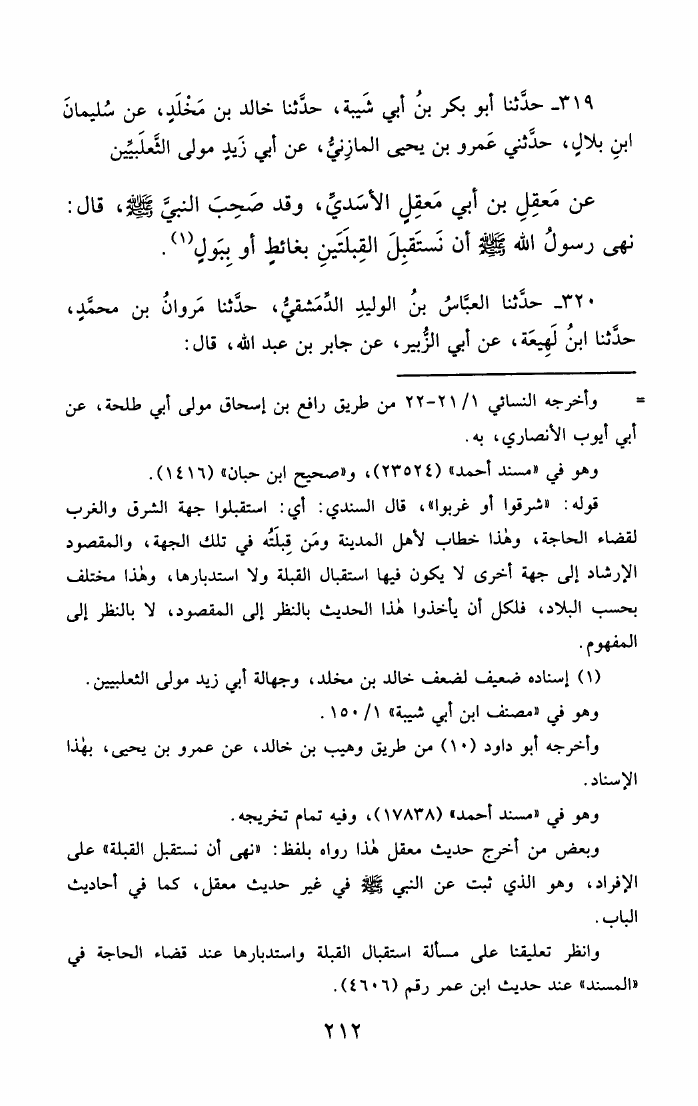 ٣١٩ـ حدَّثنا أبو بكر بنُ أبي شَيبة، حدَّثنا خالد بن مَخْلَدٍ، عن سُليمانَ
ابنِ بلالٍ، حدَّثني عَمرو بن يحيى المازِنيُّ، عن أبي زَيدٍ مولى الثَّعلَبيِّين
عن مَعقِلِ بن أبي مَعقِلٍ الأسَديِّ، وقد صَحِبَ النبيَّ ﷺ، قال:
نهى رسولُ الله ﷺ أن نَستَقبِلَ القِبلَتَينِ بغائطٍ أو بِبَولٍ(١).
٣٢٠ـ حدَّثنا العبَّاسُ بنُ الوليدِ الدِّمَشقيُّ، حدَّثنا مَروانُ بن محمَّدٍ،
حدَّثنا ابنُ لَهِيعَة، عن أبي الزُّبير، عن جابر بن عبد الله، قال:
= وأخرجه النسائي ٢١/١-٢٢ من طريق رافع بن إسحاق مولى أبي طلحة، عن
أبي أيوب الأنصاري، به.
وهو في «مسند أحمد» (٢٣٥٢٤)، و«صحيح ابن حبان» (١٤١٦).
قوله: «شرقوا أو غربوا»، قال السندي: أي: استقبلوا جهة الشرق والغرب
لقضاء الحاجة، وهٰذا خطاب لأهل المدينة ومَن قِبلَتُه في تلك الجهة، والمقصود
الإرشاد إلى جهة أخرى لا يكون فيها استقبال القبلة ولا استدبارها، وهٰذا مختلف
بحسب البلاد، فلكل أن يأخذوا هٰذا الحديث بالنظر إلى المقصود، لا بالنظر إلى
المفهوم.
(١) إسناده ضعيف لضعف خالد بن مخلد، وجهالة أبي زيد مولى الثعلبيين.
وهو في «مصنف ابن أبي شيبة» ١٥٠/١.
وأخرجه أبو داود (١٠) من طريق وهيب بن خالد، عن عمرو بن يحيى، بهٰذا
الإسناد.
وهو في «مسند أحمد» (١٧٨٣٨)، وفيه تمام تخريجه.
وبعض من أخرج حديث معقل هٰذا رواه بلفظ: «نهى أن نستقبل القبلة» على
الإفراد، وهو الذي ثبت عن النبي ﷺ في غير حديث معقل، كما في أحاديث
الباب.
وانظر تعليقنا على مسألة استقبال القبلة واستدبارها عند قضاء الحاجة في
«المسند» عند حديث ابن عمر رقم (٤٦٠٦).
٢١٢